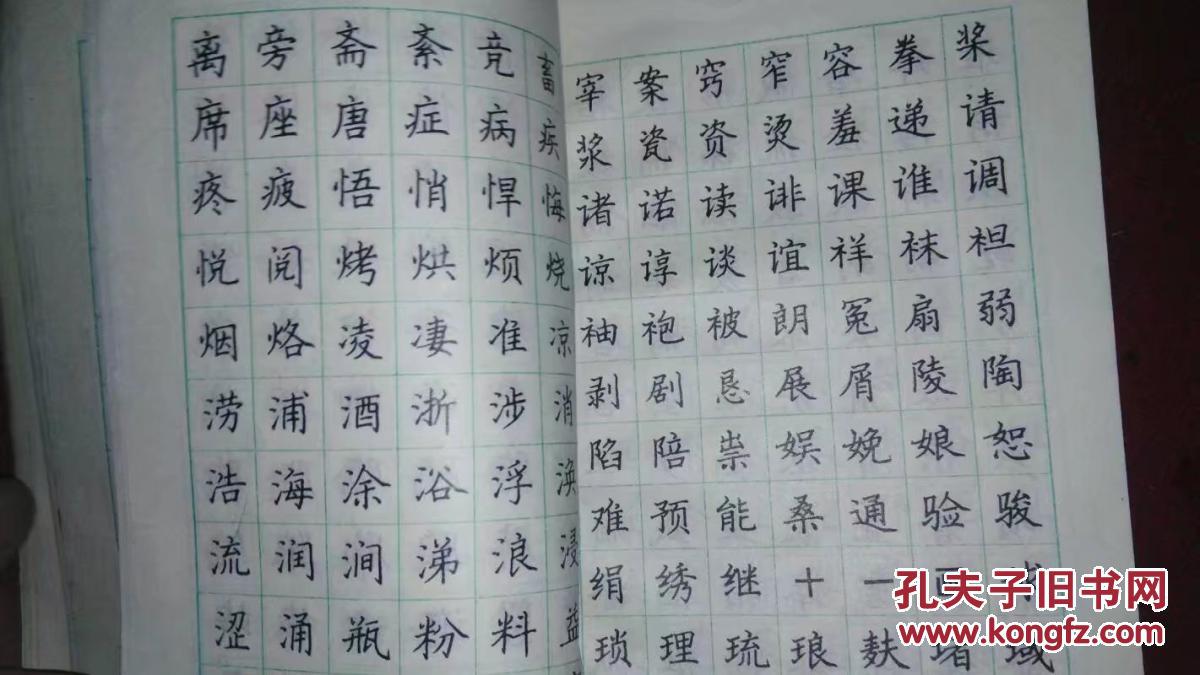 离旁斋紊竞畜
席座唐症病疾
疼疲悟悄悍悔
悦阅烤烘烦烧
烟烙凌凄准凉
涝浦酒浙涉消
浩海涂浴浮涣
流润涧涕浪浸
涩涌瓶粉料益
宰案窍窄容拳桨
浆瓷资烫羞递请
诸诺读诽课谁调
谅谆谈谊祥袜袒
袖袍被朗冤扇弱
剥剧恳展屑陵陶
陷陪祟娱娩娘恕
难预能桑通验骏
绢绣继十一画
琐理琉琅麸堵域
孔夫子旧书网
www.kongfz.com